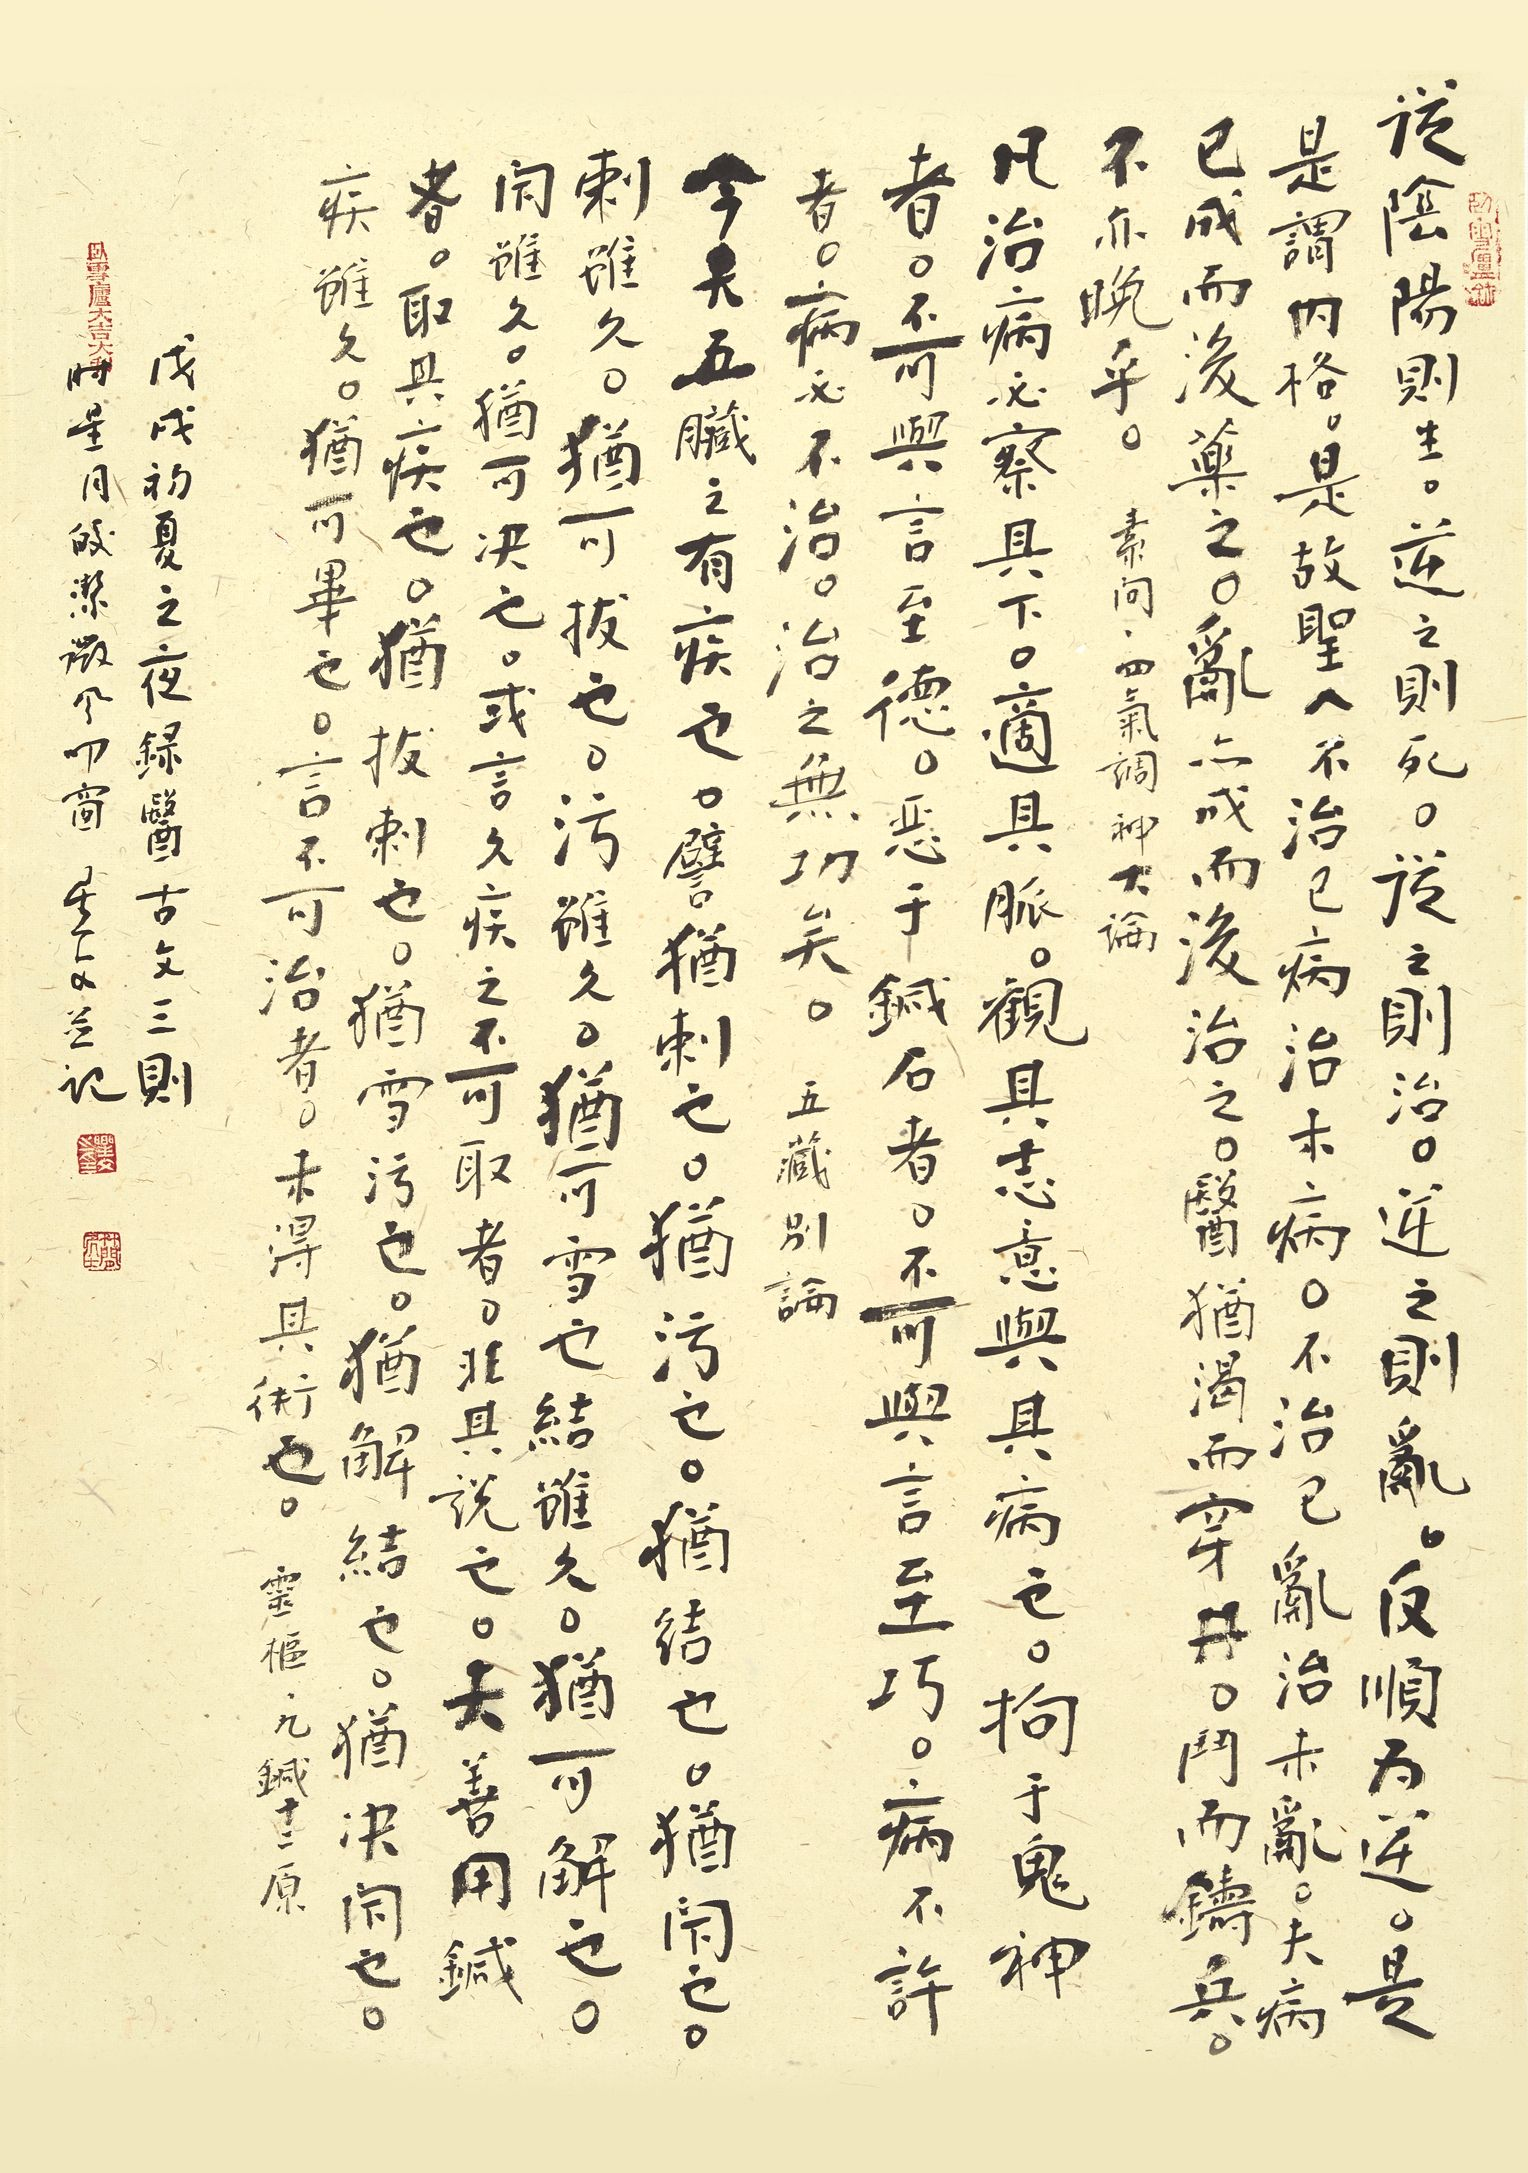 從陰陽則生。逆之則死。從之則治。逆之則亂。反順为逆。是
是謂内格。是故聖人不治已病治未病。不治已亂治未亂。夫病
已成而後藥之。亂亦成而後治之。醫猶渴而穿井。鬥而鑄兵。
不亦晚乎。 素问·四氣調神大論
凡治病必察其下。適其脈。觀其志意與其病也。拘于鬼神
者。不可與言至德。惡于鍼石者。不可與言至巧。病不許
者。病必不治。治之無功矣。 五藏别論
今夫五臟之有疾也。譬猶刺也。猶污也。猶结也。猶闭也。
刺雖久。猶可拔也。污雖久。猶可雪也結雖久。猶可解也。
闭雖久。猶可决也。或言久疾之不可取者。非其説也。夫善用鍼
者。取其疾也。猶拔刺也。猶雪污也。猶解結也。猶决闭也。
疾雖久。猶可畢也。言不可治者。未得其術也。 靈樞九鍼十二原
戊戌初夏之夜録醫古文三則
時星月皎潔微风叩窗 並记
卧雪廬大吉大利